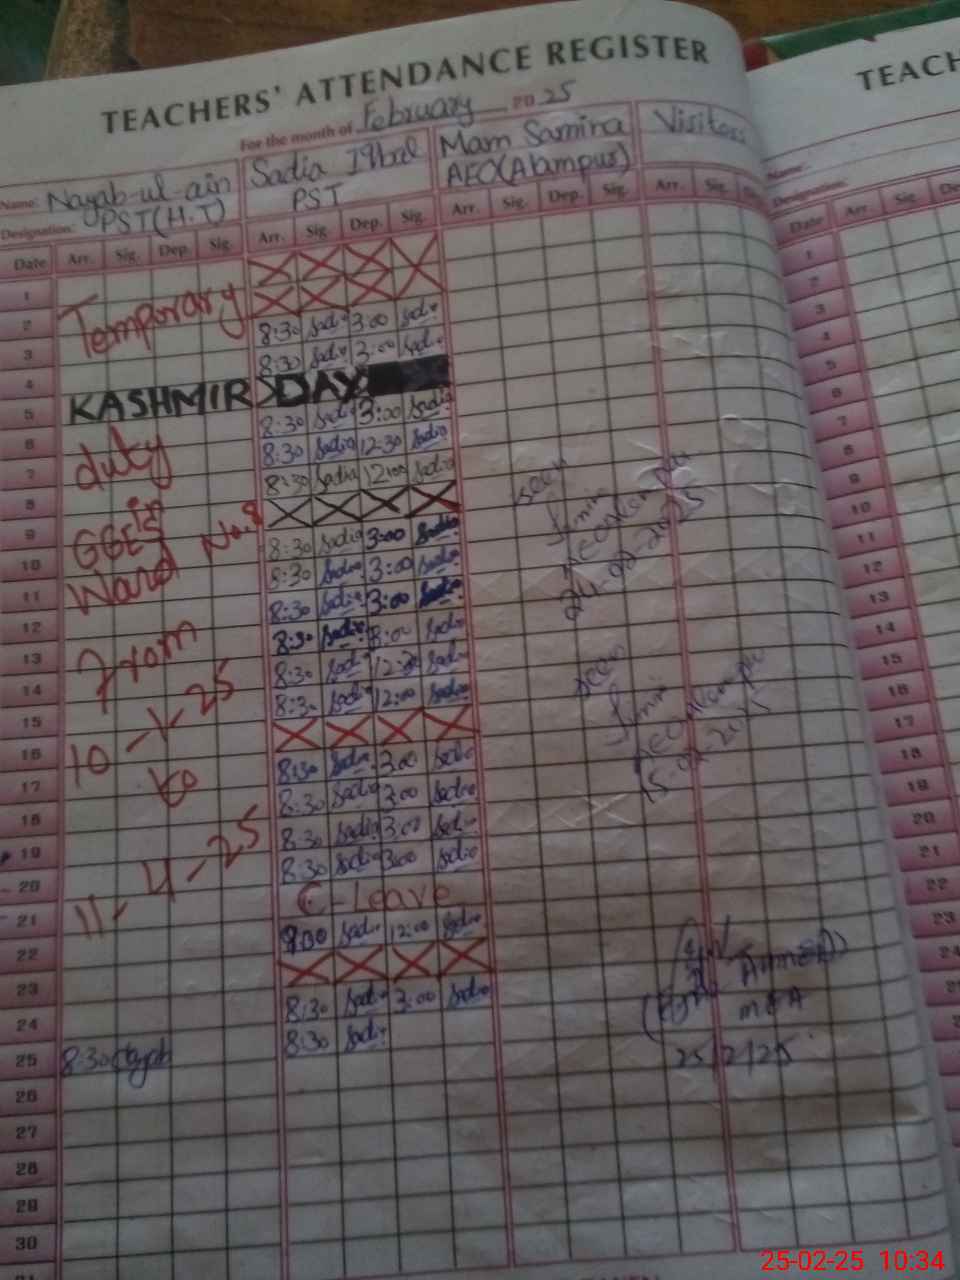 TEACHERS' ATTENDANCE REGISTER
For the month of February 2025
Name: Nayab-ul-ain Sadia Iqbal Mam Samina Visitors
Designation: PST(H.T) PST AEO(Alampur)
Date Arr. Sig. Dep. Sig. Arr. Sig. Dep. Sig. Arr. Sig. Dep. Sig. Arr. Sig.
1
2 Temporary
3 8:30 Sadia 3:00 Sadia
4 8:30 Sadia 3:00 Sadia
5 KASHMIR DAY
6 8:30 Sadia 3:00 Sadia
7 duty 8:30 Sadia 12:30 Sadia
8 8:30 Sadia 12:00 Sadia
9 in
10 GGES 8:30 Sadia 3:00 Sadia
11 Ward No.8 8:30 Sadia 3:00 Sadia
12 8:30 Sadia 3:00 Sadia
13 From 8:30 Sadia 3:00 Sadia
14 8:30 Sadia 12:30 Sadia
15 8:30 Sadia 12:00 Sadia
16 10-1-25
17 to 8:30 Sadia 3:00 Sadia
18 8:30 Sadia 3:00 Sadia
19 8:30 Sadia 3:00 Sadia
20 11-4-25 8:30 Sadia 3:00 Sadia
21 C-Leave
22 9:00 Sadia 12:00 Sadia
23
24 8:30 Sadia 3:00 Sadia
25 8:30 8:30 Sadia
26
27
28
29
30
seen
24-02-2025
seen
15-02-2025
MEA
25/2/25
TEACH
Name:
Designation:
Date Arr. Sig.
1
2
3
4
5
6
7
8
9
10
11
12
13
14
15
16
17
18
19
20
21
22
23
24
25-02-25 10:34